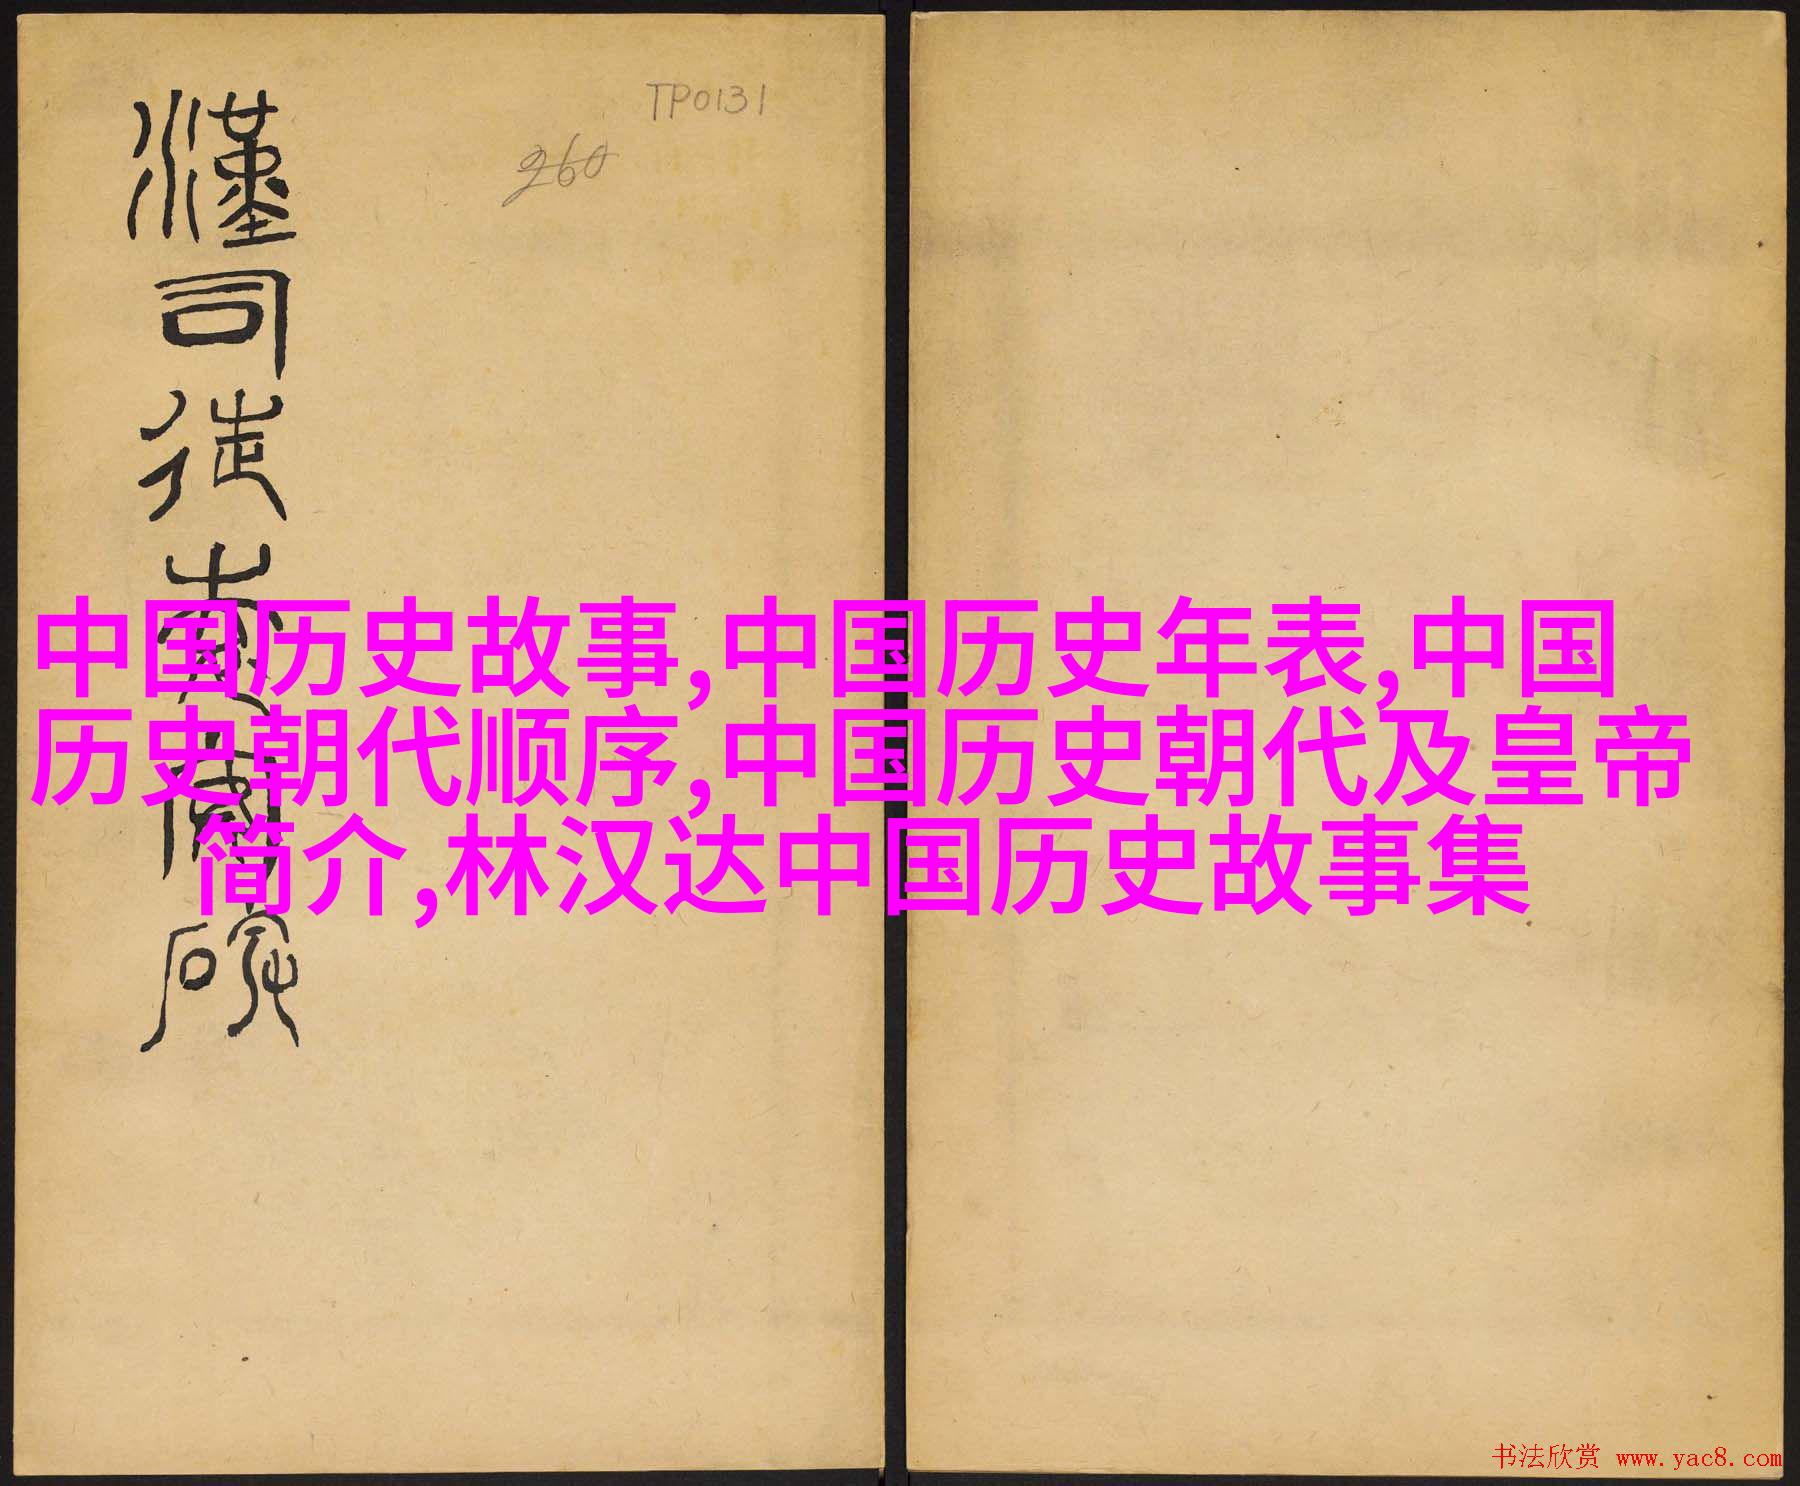 TP0131
260
漢司徒袁安碑
中国历史故事,中国历史年表,中国
历史朝代顺序,中国历史朝代及皇帝
简介,林汉达中国历史故事集
书法欣赏 www.yac8.com